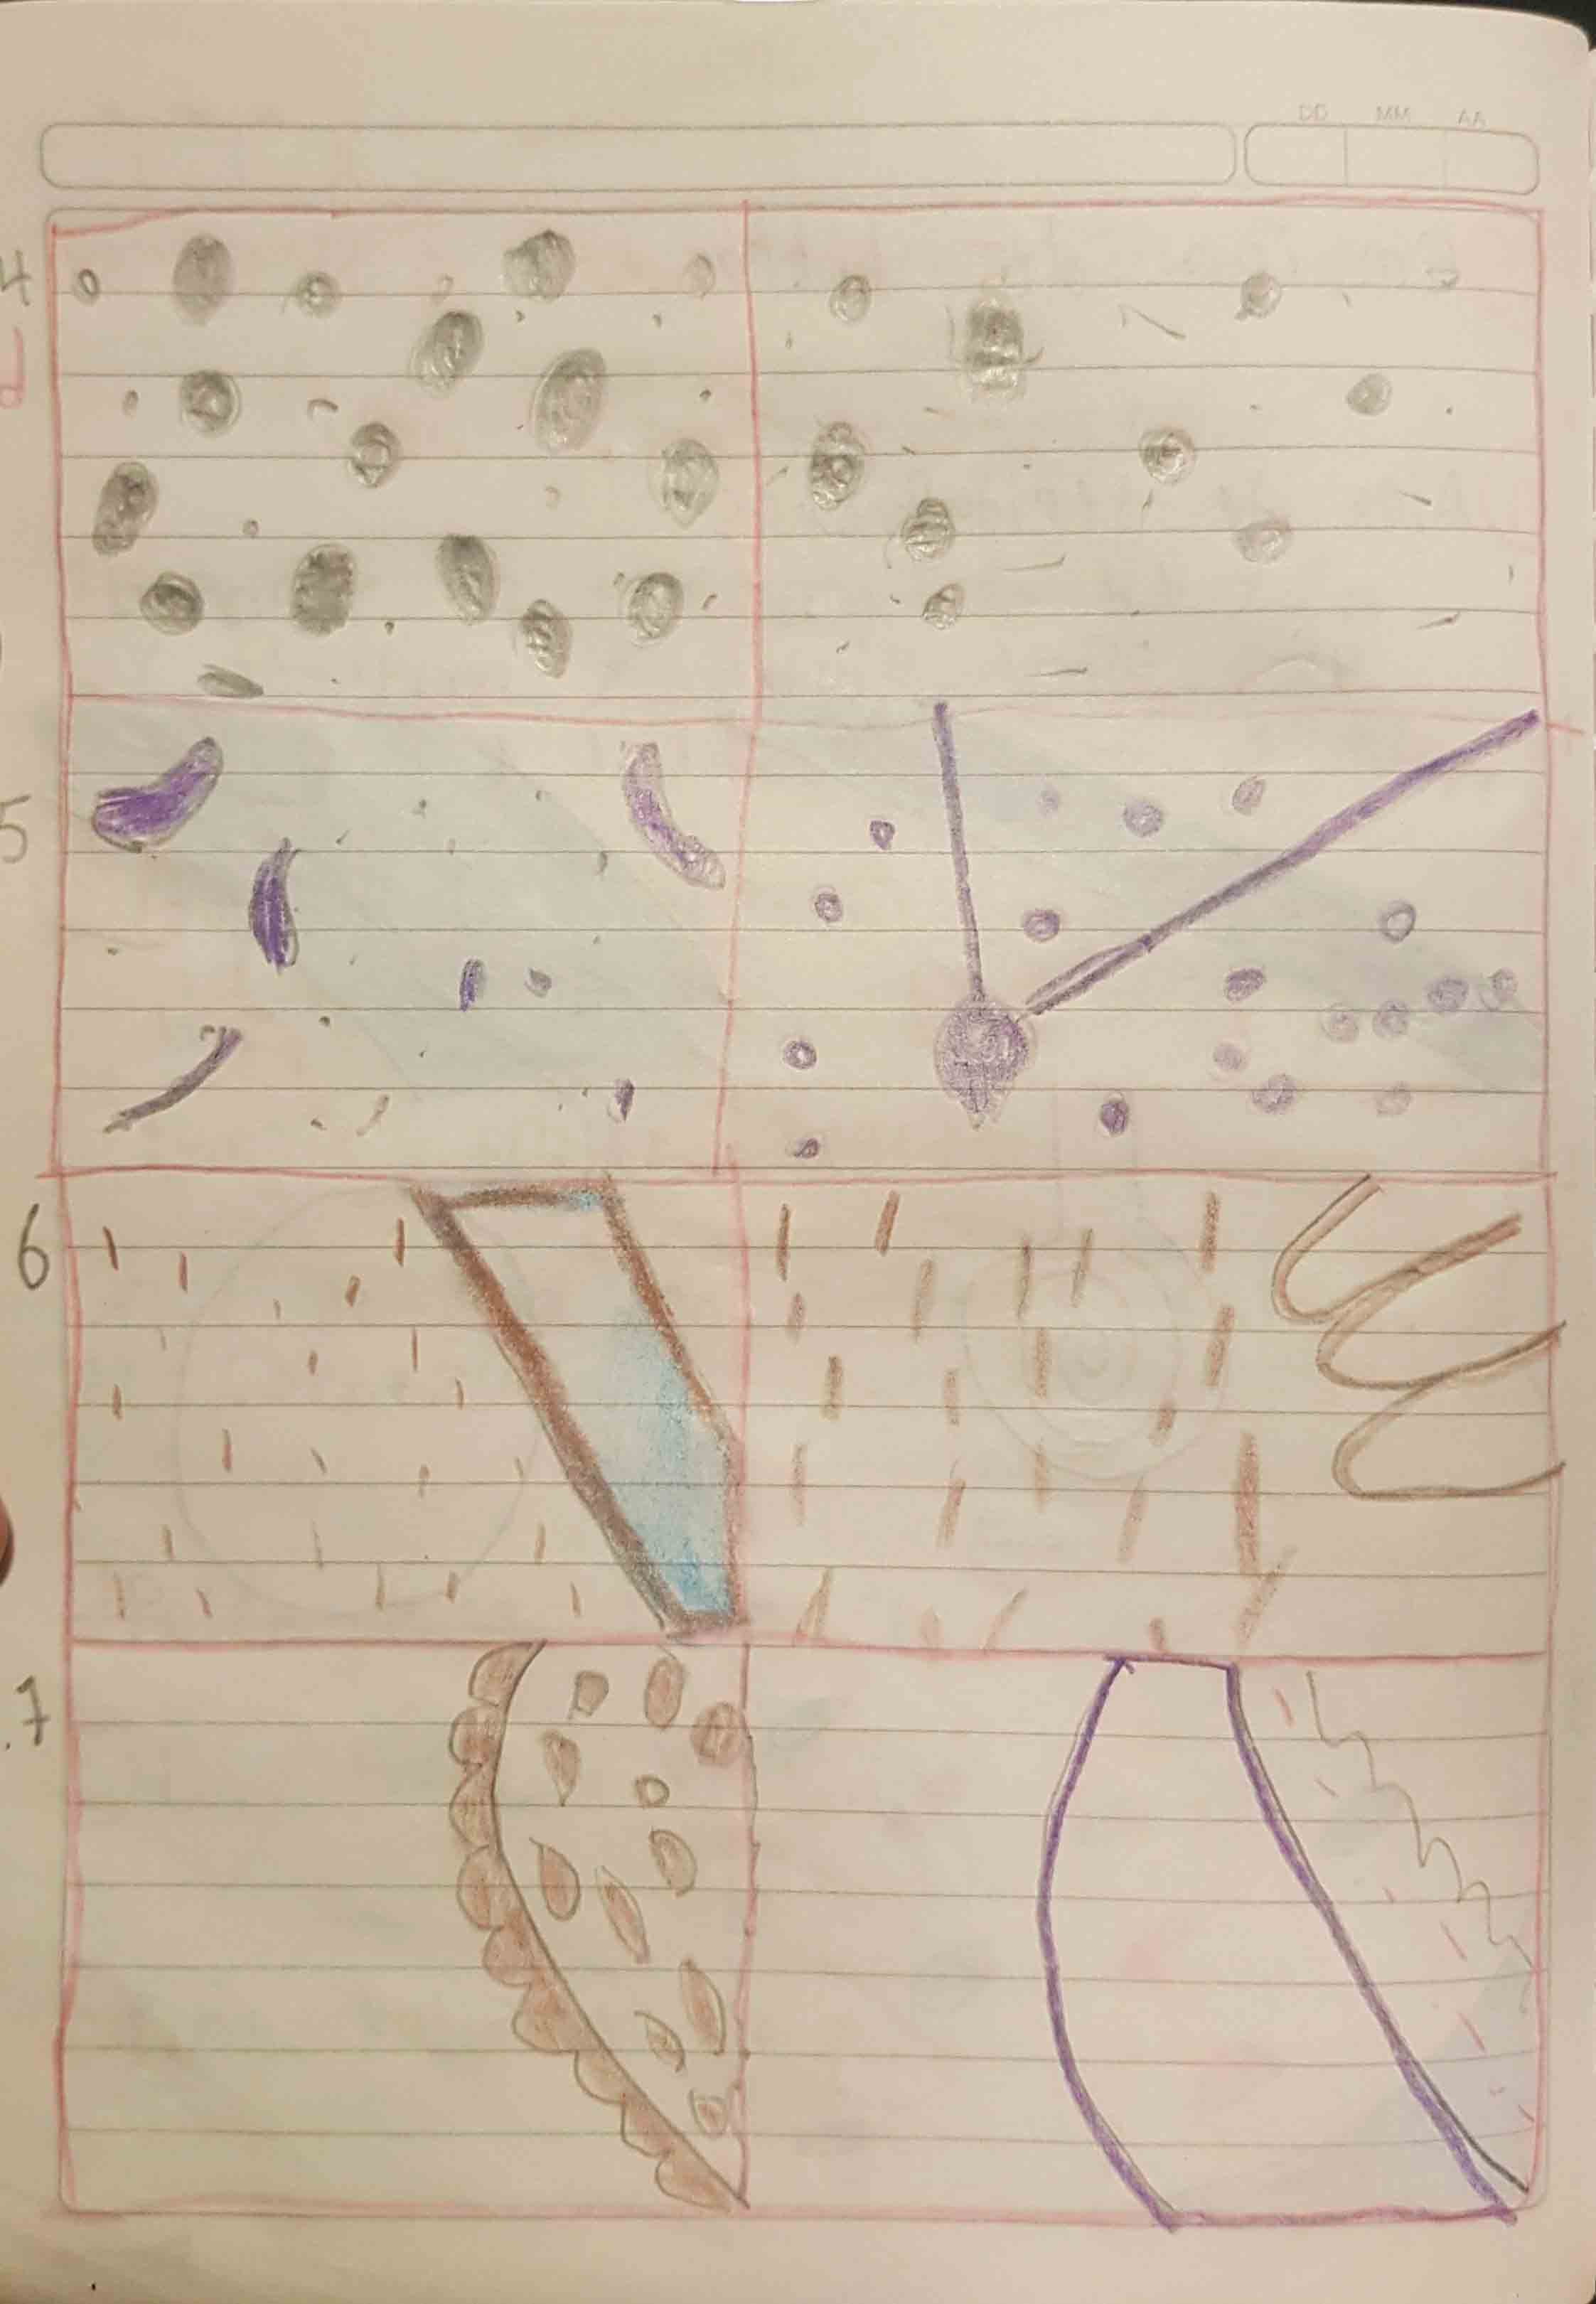 DD MM AA
4
5
6
.7